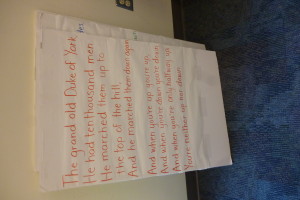 The grand old Duke of York
He had ten thousand men
He marched them up to
the top of the hill
And he marched them down again
And when you're up you're up
And when you're down you're down
And when you're only halfway up
You're neither up nor down